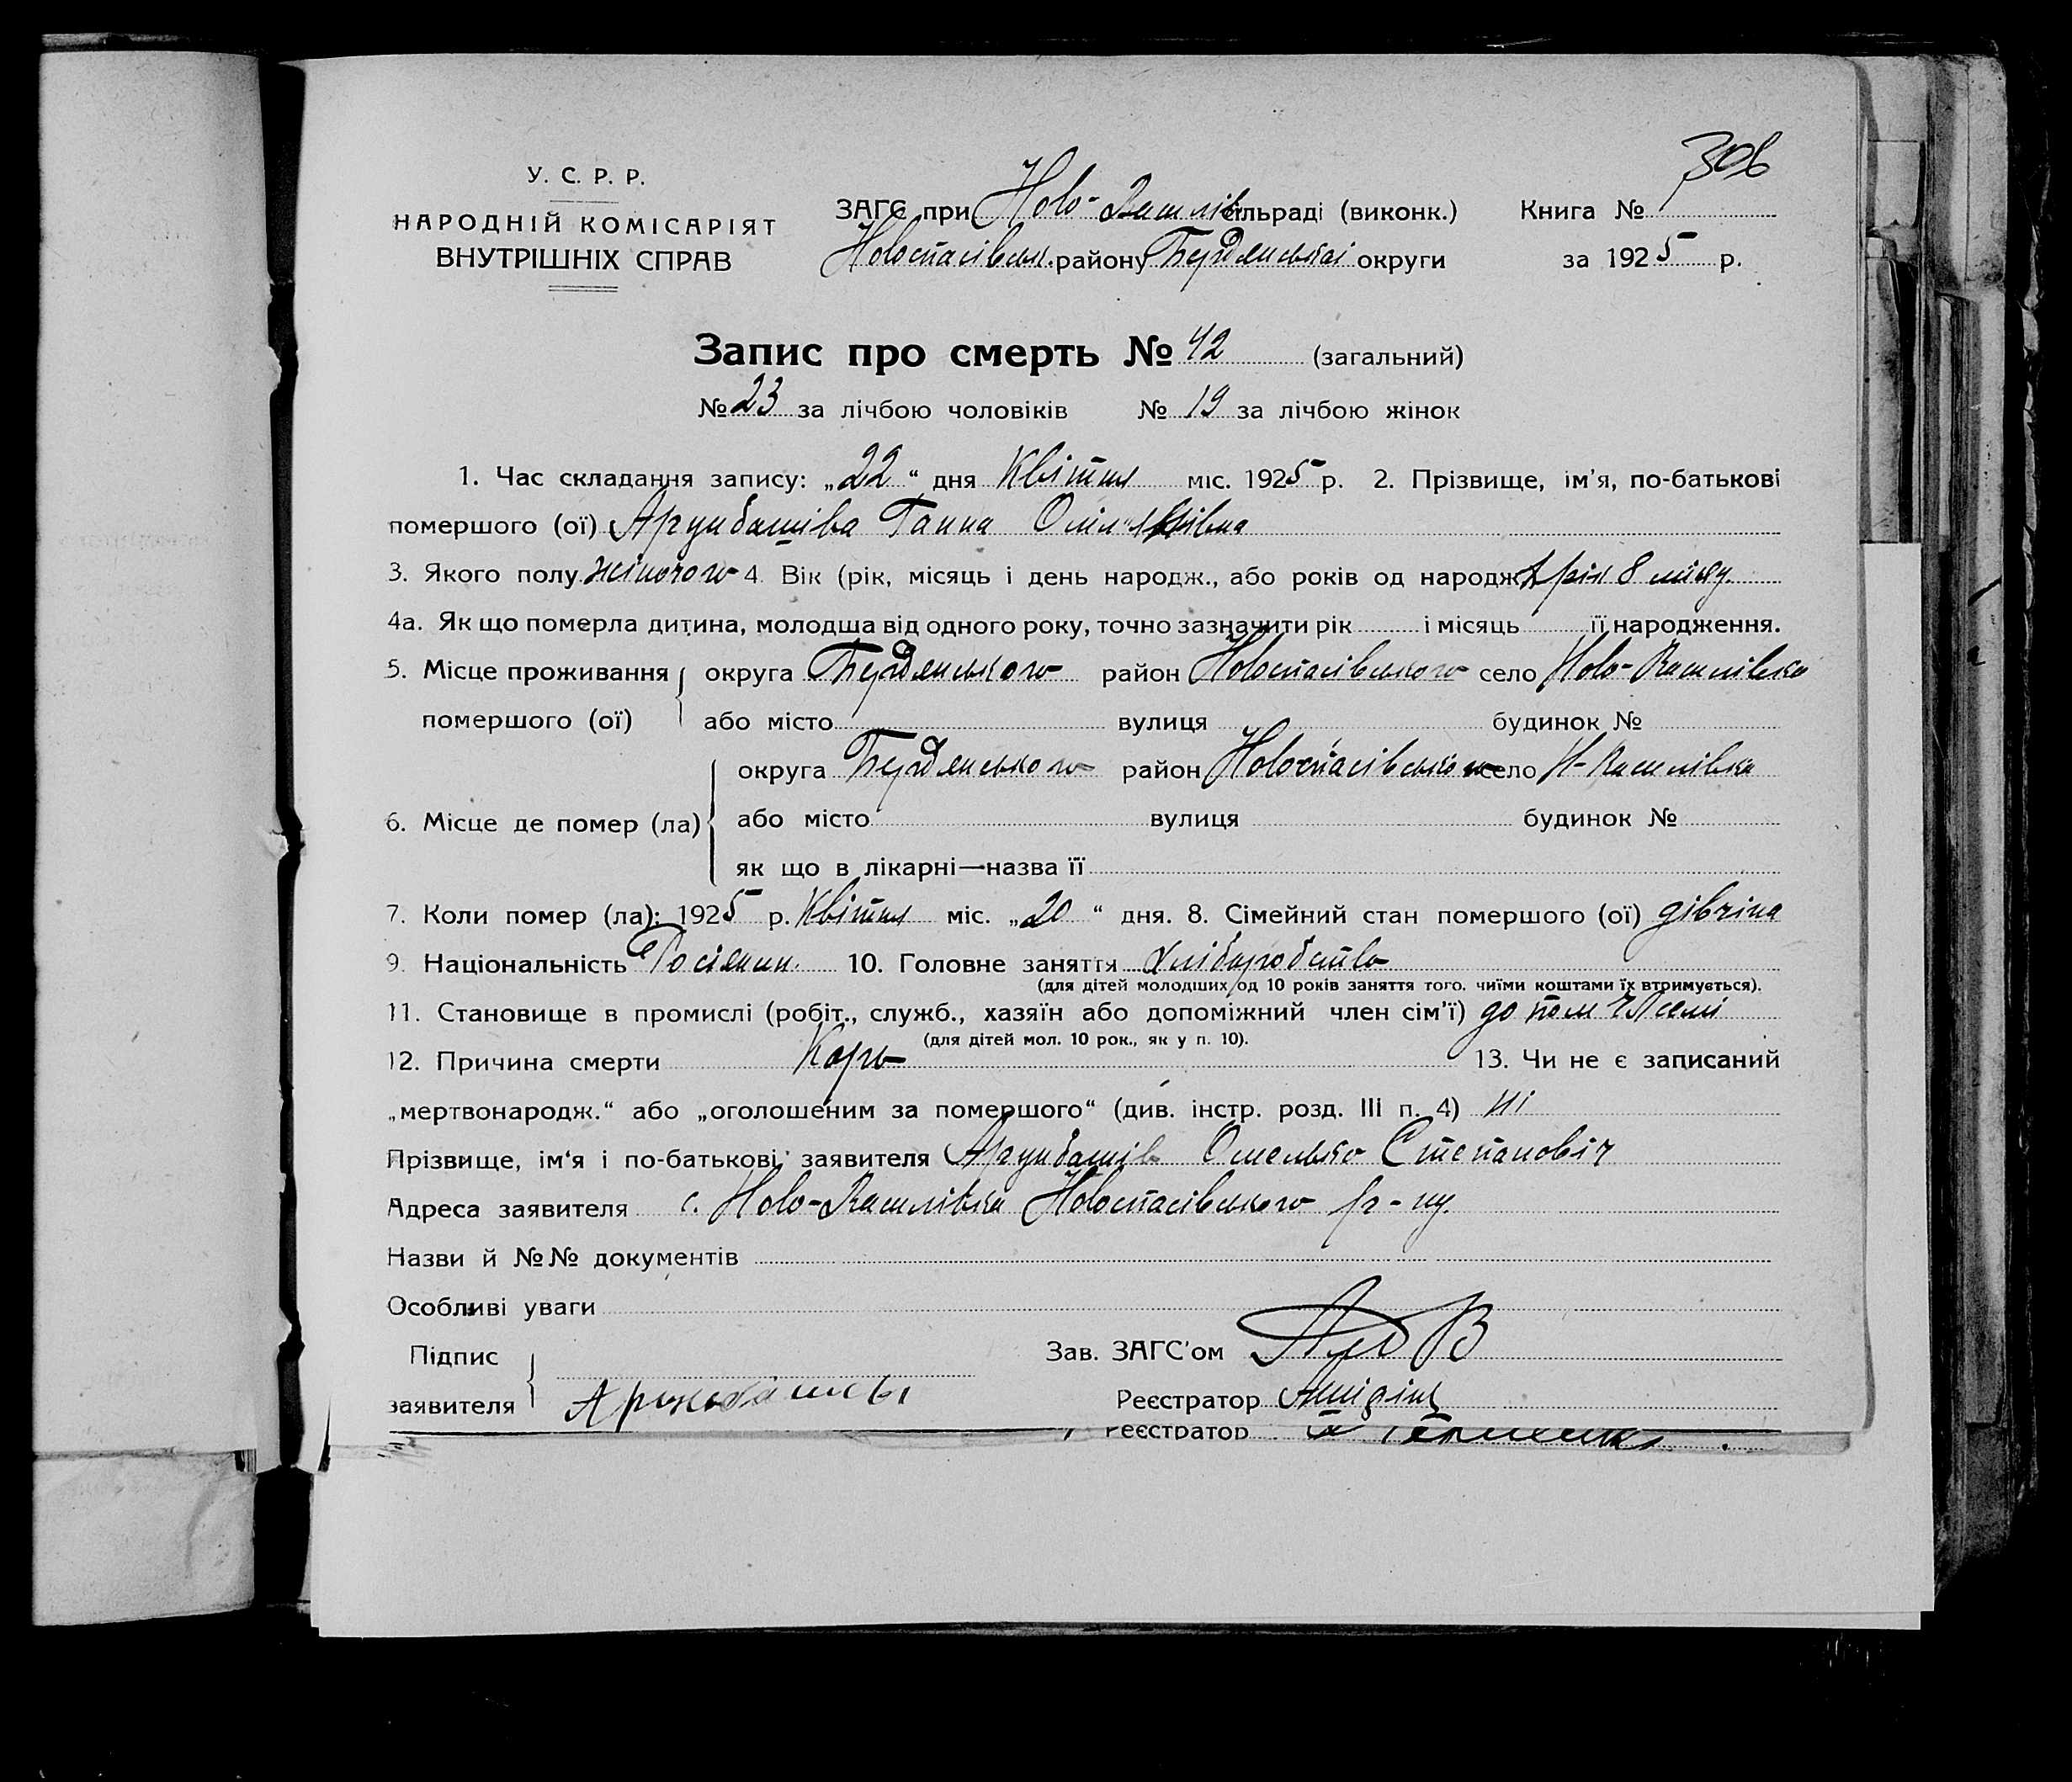 306
У. С. Р. Р.
НАРОДНІЙ КОМІСАРІЯТ
ВНУТРІШНІХ СПРАВ
ЗАГС при Ново-Василів сільраді (виконк.) Книга №
Новоспасівськ. району Бердянської округи за 1925 р.
Запис про смерть № 42 (загальний)
№ 23 за лічбою чоловіків № 19 за лічбою жінок
1. Час складання запису: „22“ дня Квітня міс. 1925 р. 2. Прізвище, ім'я, по-батькові
помершого (ої) Арунбашіва Ганна
3. Якого полу жіночого 4. Вік (рік, місяць і день народж., або років од народж. 1 рік 8 місяц.
4а. Як що померла дитина, молодша від одного року, точно зазначити рік і місяць її народження.
5. Місце проживання округа Бердянського район Новоспасівського село Ново-Василівка
помершого (ої) або місто вулиця будинок №
округа Бердянського район Новоспасівського село Н-Василівка
6. Місце де помер (ла) або місто вулиця будинок №
як що в лікарні—назва її
7. Коли помер (ла): 1925 р. Квітня міс. „20“ дня. 8. Сімейний стан помершого (ої) дівчіна
9. Національність Росіянин. 10. Головне заняття хліборобство
(для дітей молодших од 10 років заняття того. чиїми коштами їх втримується).
11. Становище в промислі (робіт., служб., хазяїн або допоміжний член сім'ї) допом чл семі
(для дітей мол. 10 рок., як у п. 10).
12. Причина смерти Корь 13. Чи не є записаний
„мертвонародж.“ або „оголошеним за помершого“ (див. інстр. розд. III п. 4) ні
Прізвище, ім'я і по-батькові заявителя Арунбашів Омелько Степановіч
Адреса заявителя с. Ново-Василівка Новоспасівського р-ну.
Назви й №№ документів
Особливі уваги
Підпис
Зав. ЗАГС'ом
заявителя
Реєстратор
Реєстратор